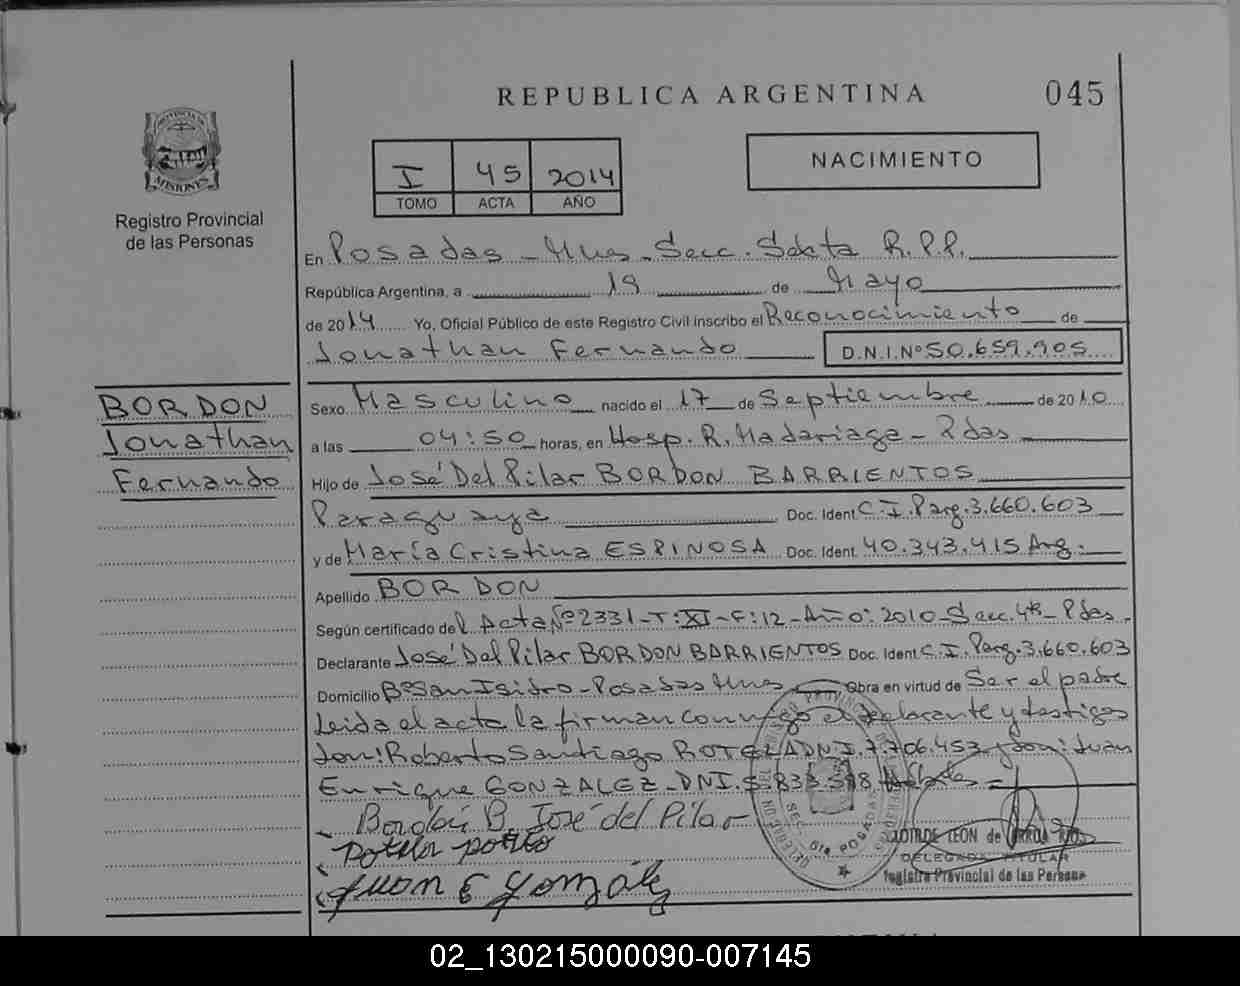 REPUBLICA ARGENTINA
045
PROVINCIA DE MISIONES
Registro Provincial
de las Personas
I 45 2014
TOMO ACTA AÑO
NACIMIENTO
En Posadas - Mnes. Secc. Sexta R.P.P.
República Argentina, a 19 de Mayo
de 2014 Yo, Oficial Público de este Registro Civil inscribo el Reconocimiento de
Jonathan Fernando D.N.I.Nº 50.659.905
BORDON
Jonathan
Fernando
Sexo Masculino nacido el 17 de Septiembre de 2010
a las 04:50 horas, en Hosp. R. Madariaga - Pdas
Hijo de José Del Pilar BORDON BARRIENTOS
Paraguaya Doc. Ident C.I. Parg. 3.660.603
y de María Cristina ESPINOSA Doc. Ident. 40.343.415 Arg.
Apellido BORDON
Según certificado del Acta Nº 2331 - T: XI - F: 12 - Año: 2010 - Secc. 4ta - Pdas.
Declarante José Del Pilar BORDON BARRIENTOS Doc. Ident C.I. Parg. 3.660.603
Domicilio Bº San Isidro - Posadas Mnes Obra en virtud de Ser el padre
Leida el acta la firman conmigo el declarante y testigos
Don: Roberto Santiago ROTELA DNI. 7.706.453 y Don: Juan
Enrique GONZALEZ - DNI.
Bordón B. José del Pilar
Juan E Gonzalez
LEON de
DELEGADA TITULAR
Registro Provincial de las Personas
02_130215000090-007145